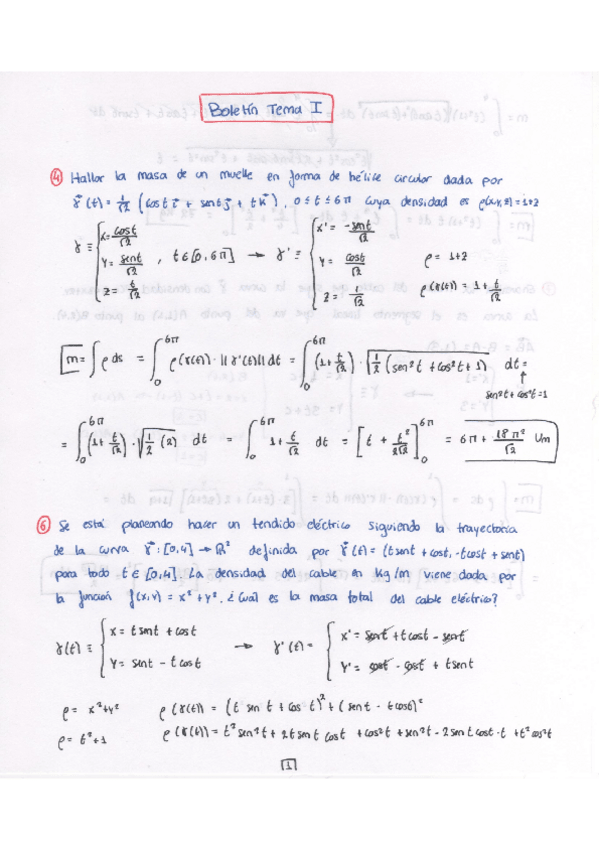 Boletín Tema I
④ Hallar la masa de un muelle en forma de hélice circular dada por
γ⃗(t) = 1/√2 (cost i⃗ + sent j⃗ + t k⃗), 0 ≤ t ≤ 6π cuya densidad es ρ(x,y,z) = 1+z
γ ≡ { x = cost/√2, y = sent/√2, z = t/√2 , t∈[0,6π] → γ' ≡ { x' = -sent/√2, y = cost/√2, z = 1/√2
ρ = 1+z
ρ(γ(t)) = 1 + t/√2
m = ∫ ρ ds = ∫₀^6π ρ(γ(t)) · ||γ'(t)|| dt = ∫₀^6π (1 + t/√2) · √(1/2 (sen²t + cos²t + 1)) dt =
↑
sen²t + cos²t = 1
= ∫₀^6π (1 + t/√2) · √(1/2 (2)) dt = ∫₀^6π 1 + t/√2 dt = [t + t²/2√2]₀^6π = 6π + 18π²/√2 Um
⑥ Se está planeando hacer un tendido eléctrico siguiendo la trayectoria
de la curva γ⃗: [0,4] → ℝ² definida por γ⃗(t) = (tsent + cost, -tcost + sent)
para todo t∈[0,4]. La densidad del cable en Kg/m viene dada por
la función f(x,y) = x² + y². ¿Cuál es la masa total del cable eléctrico?
γ(t) ≡ { x = t sent + cost, y = sent - t cost → γ'(t) = { x' = sent + t cost - sent, y' = cost - cost + t sent
ρ = x²+y² ρ(γ(t)) = (t sen t + cos t)² + (sen t - t cost)²
ρ = t²+1 ρ(γ(t)) = t² sen²t + 2t sent cost + cos²t + sen²t - 2 sent cost · t + t² cos²t
1